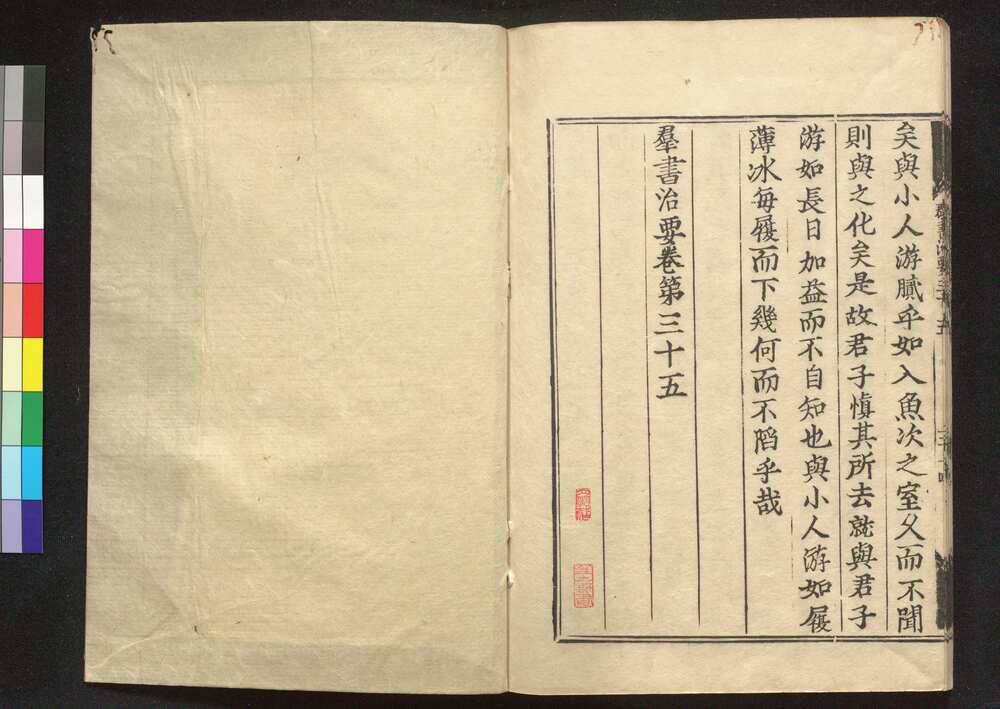 矣與小人游膩乎如入魚次之室久而不聞
則與之化矣是故君子慎其所去就與君子
游如長日加益而不自知也與小人游如履
薄冰每履而下幾何而不陷乎哉
羣書治要卷第三十五